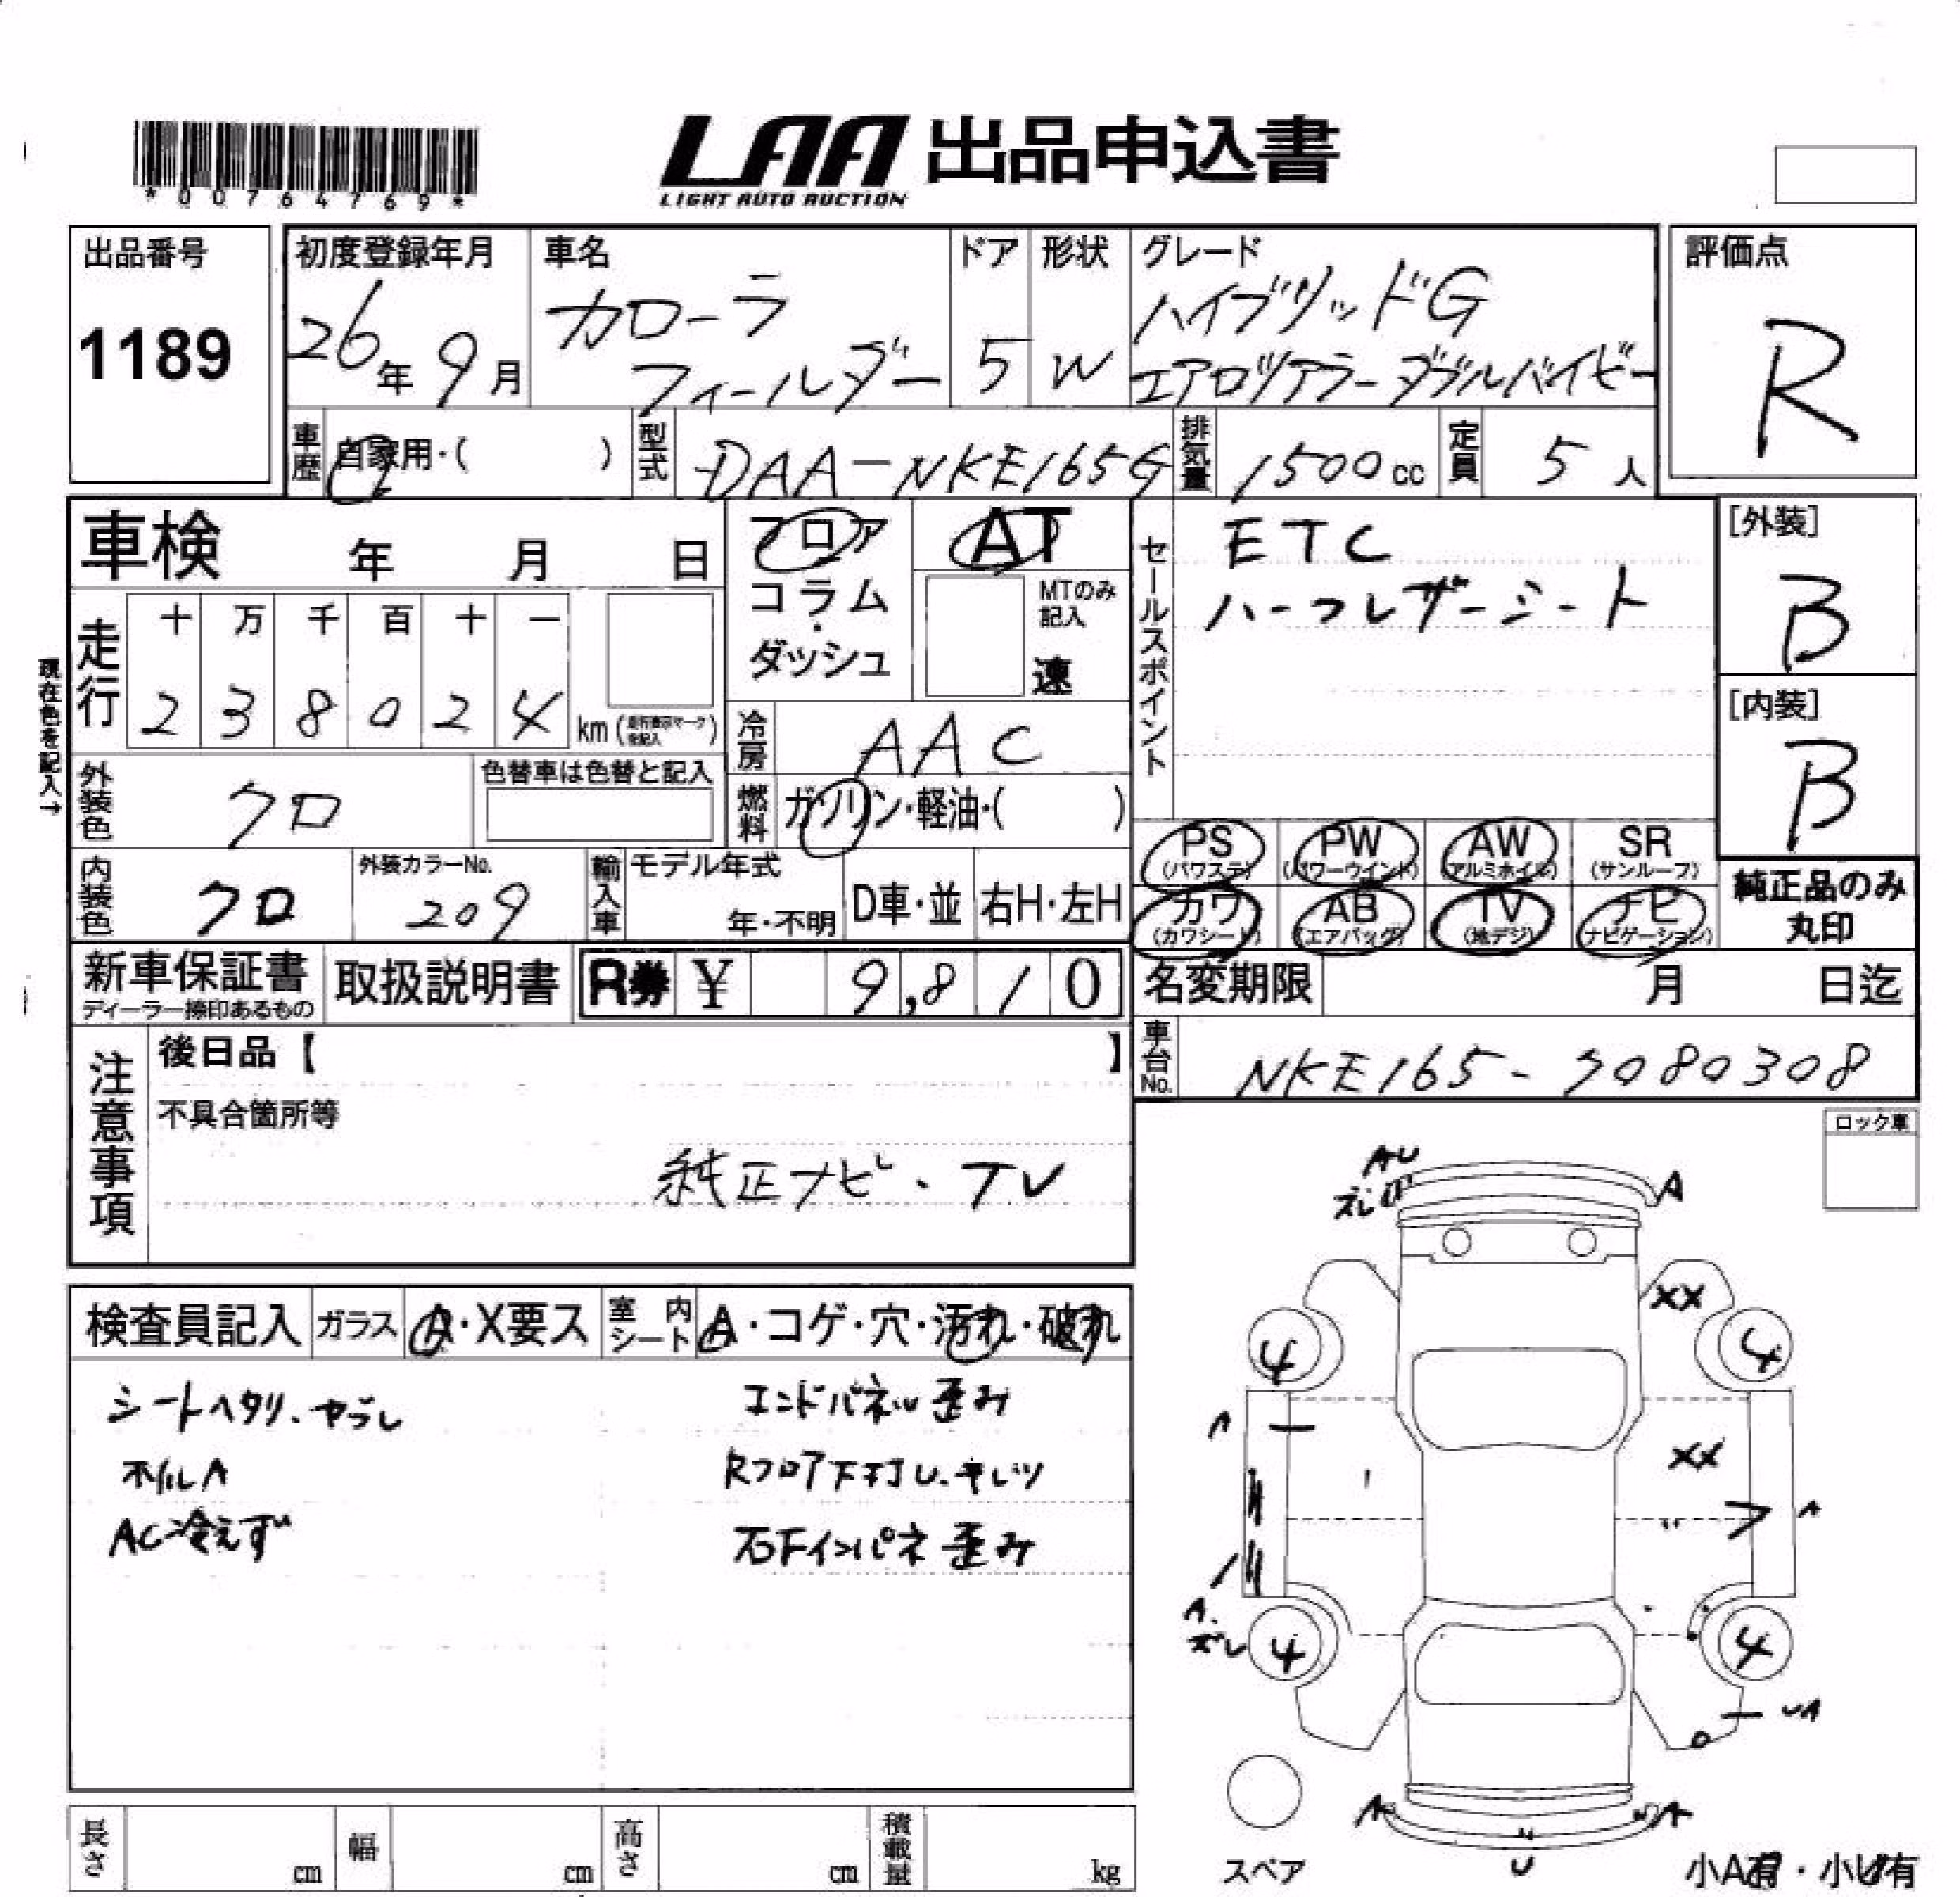 *00764769*
LAA 出品申込書
LIGHT AUTO AUCTION
出品番号
1189
初度登録年月
26年 9月
車名
カローラ
フィールダー
ドア
5
形状
W
グレード
ハイブリッドG
エアロツアラーダブルバイビー
評価点
R
車歴
自家用・( )
型式
DAA-NKE165G
排気量
1500cc
定員
5人
車検 年 月 日
フロア
コラム
・
ダッシュ
AT
MTのみ
記入
速
セールスポイント
ETC
ハーフレザーシート
[外装]
B
[内装]
B
現在色を記入→
走行
十 万 千 百 十 一
2 3 8 0 2 4 km
冷房
AAC
外装色
クロ
色替車は色替と記入
燃料
ガソリン・軽油・( )
PS
(パワステ)
PW
(パワーウインド)
AW
(アルミホイル)
SR
(サンルーフ)
内装色
クロ
外装カラーNo.
209
輸入車
モデル年式
年・不明
D車・並
右H・左H
カワ
(カワシート)
AB
(エアバッグ)
TV
(地デジ)
ナビ
(ナビゲーション)
純正品のみ
丸印
新車保証書
ディーラー捺印あるもの
取扱説明書
R券 ¥ 9,810
名変期限 月 日迄
注意事項
後日品【 】
不具合箇所等
純正ナビ、TV
車台No.
NKE165-7080308
ロック車
検査員記入
ガラス
A・X要ス
室内シート
A・コゲ・穴・汚れ・破れ
シートヘタリ、ヤブレ
ホイルA
AC冷えず
エンドパネル歪み
Rフロア下打U、キレツ
右Fインパネ歪み
AU
ズレ
A
XX
4
4
A
XX
A
A、
ズレ
4
4
UA
A
A
U
スペア
小A有・小U有
長さ cm
幅 cm
高さ cm
積載量 kg